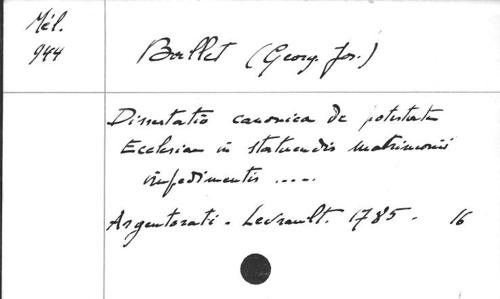 Mél.
944
Boullet (Georg. Jos.)
Dissertatio canonica de potestate
Ecclesiae in statuendis matrimonii
impedimentis .....
Argentorati - Levrault. 1785. 16